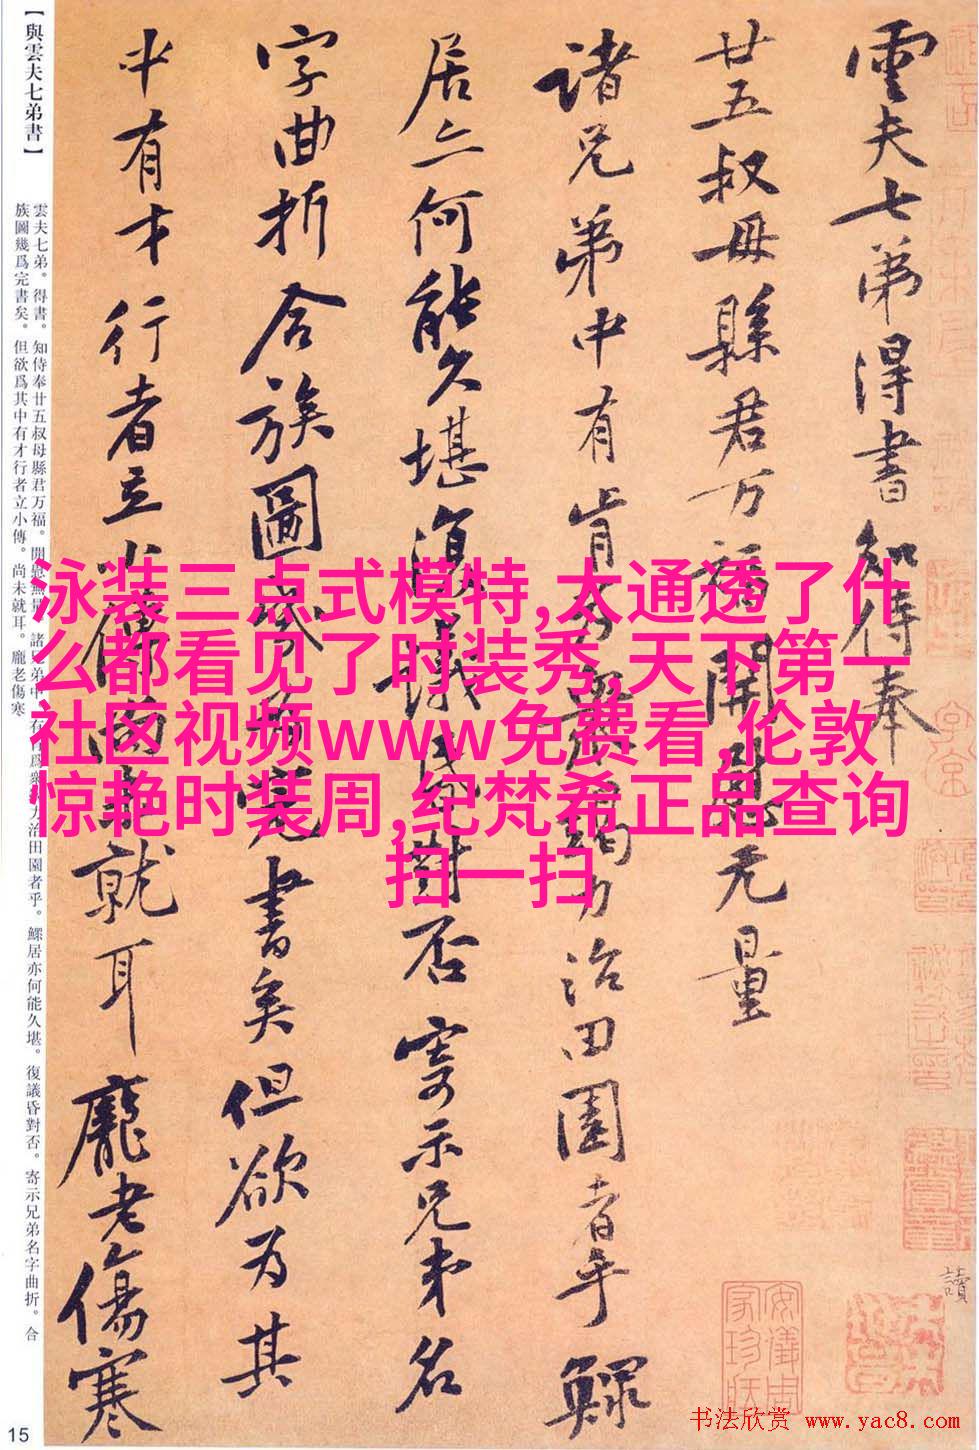 雲夫七弟得書知侍奉
廿五叔母縣君万福開慰无量
諸兄弟中有肯為衆竭力治田園者乎鰥
居亦何能久堪復議昏對否寄示兄弟名
字曲折合族圖幾為完書矣但欲為其
中有才行者立小傳尚未就耳龐老傷寒
讀
安儀周家珍藏
【與雲夫七弟書】
雲夫七弟。得書。知侍奉廿五叔母縣君万福。開慰無量。諸兄弟中。有肯爲衆竭力治田園者乎。鰥居亦何能久堪。復議昏對否。寄示兄弟名字曲折。合
族圖幾爲完書矣。但欲爲其中有才行者立小傳。尚未就耳。龐老傷寒
15
泳装三点式模特,太通透了什
么都看见了时装秀,天下第一
社区视频www免费看,伦敦
惊艳时装周,纪梵希正品查询
扫一扫
书法欣赏 www.yac8.com